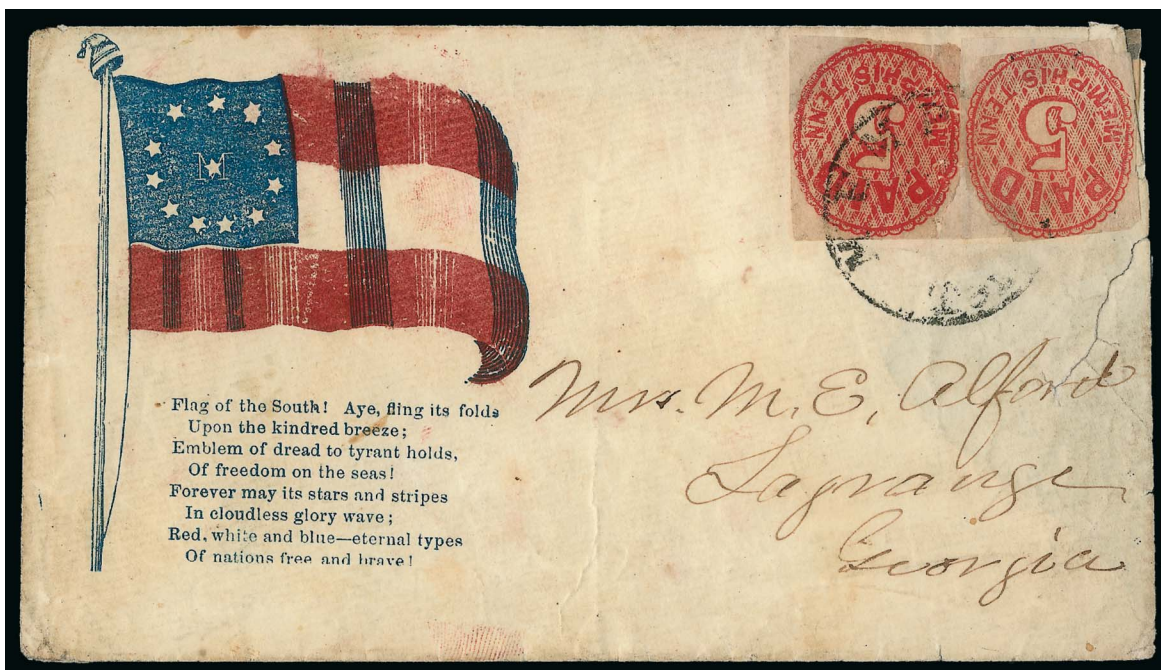 PAID
5
MEMPHIS, TENN
PAID
5
MEMPHIS, TENN
M
Flag of the South! Aye, fling its folds
Upon the kindred breeze;
Emblem of dread to tyrant holds,
Of freedom on the seas!
Forever may its stars and stripes
In cloudless glory wave;
Red, white and blue—eternal types
Of nations free and brave!
Mrs. M. E, Alford
Lagrange
Georgia